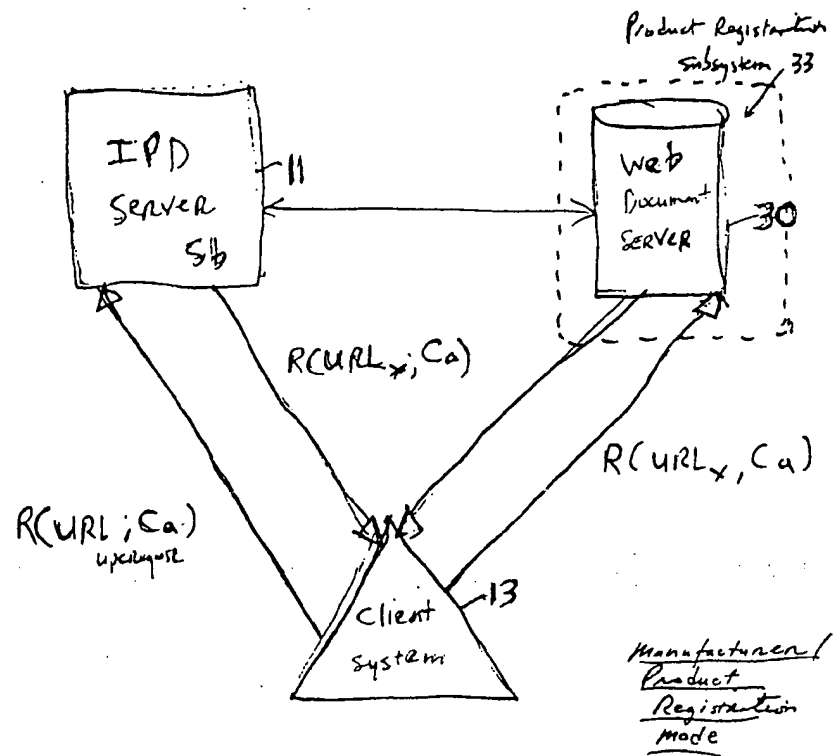 Product Registration
Subsystem 33
IPD
Server
11
Web
Document
Server
30
R(URLx; Ca)
R(URLx, Ca)
R(URL; Ca)
Client
System
13
Manufacturer/
Product
Registration
Mode